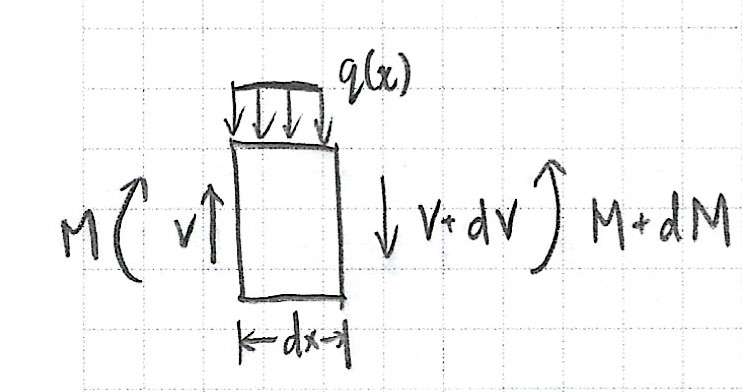 q(x)
M V V+dV M+dM
dx